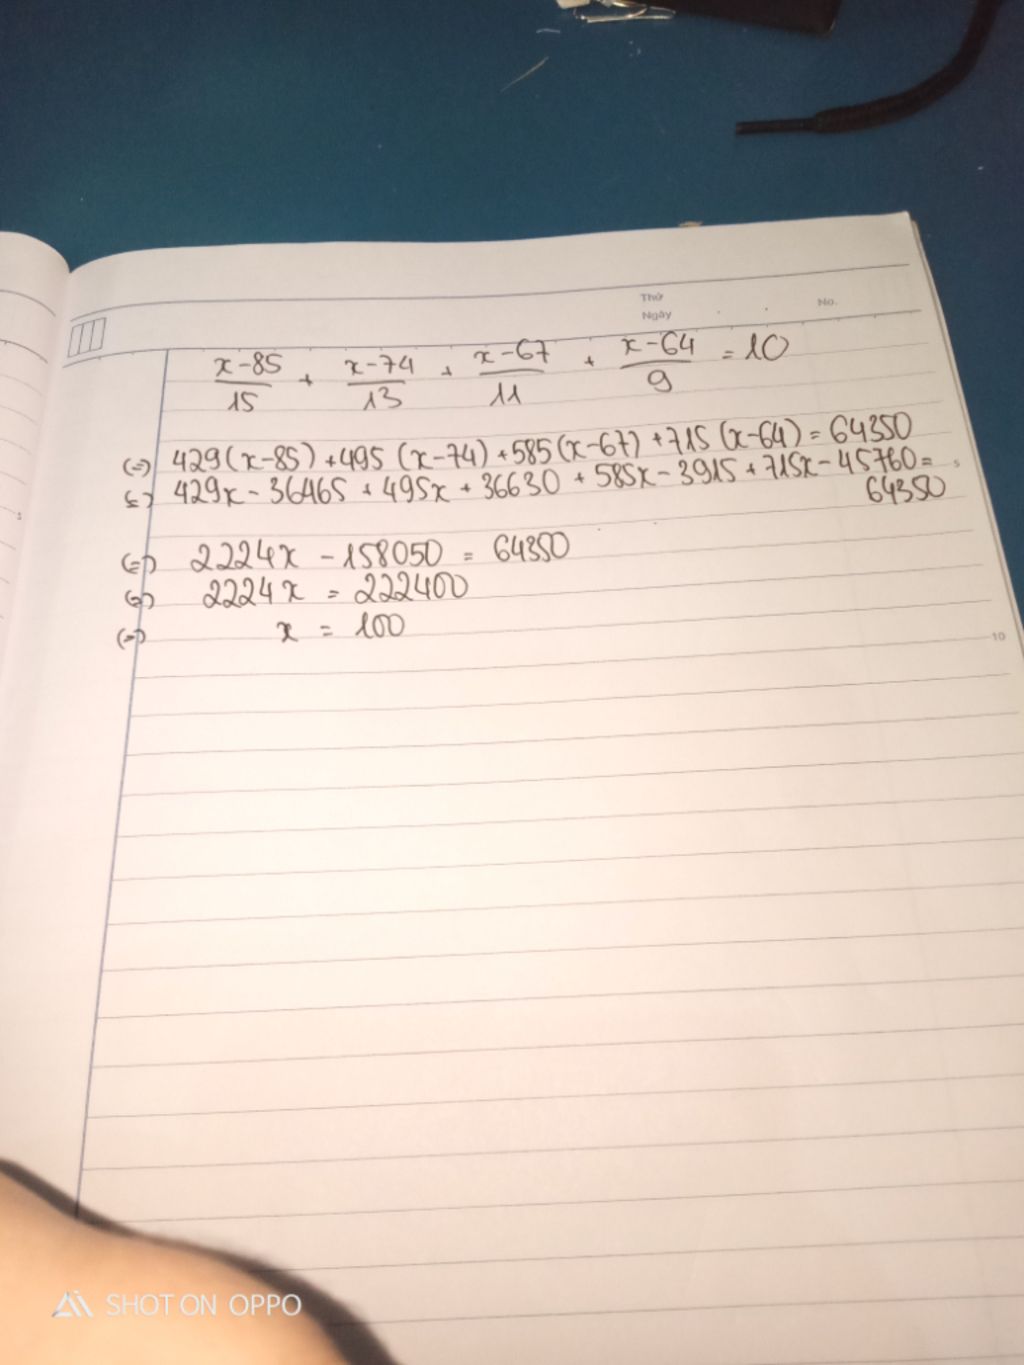 Thứ
Ngày
No.
x-85/15 + x-74/13 + x-67/11 + x-64/9 = 10
(=) 429(x-85) +495 (x-74) +585(x-67) +715 (x-64) = 64350
(=) 429x - 36465 + 495x + 36630 + 585x - 3915 + 715x - 45760 =
5
64350
(=) 2224x - 158050 = 64350
(=) 2224x = 222400
(=) x = 100
10
SHOT ON OPPO